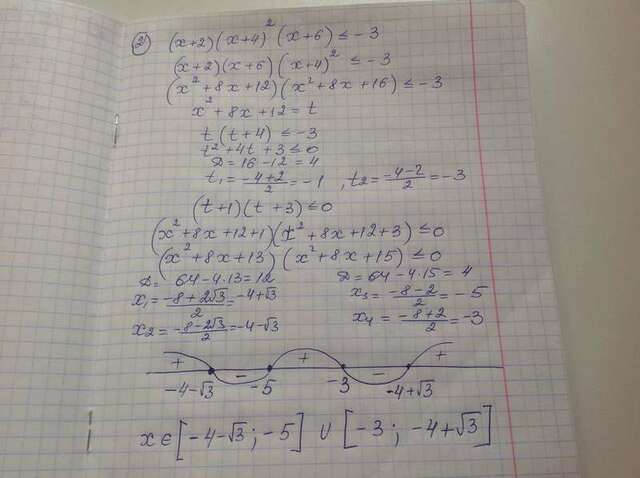 ② (x+2)(x+4)² (x+6) ≤ -3
(x+2)(x+6)(x+4)² ≤ -3
(x²+8x+12)(x²+8x+16) ≤ -3
x²+8x+12 = t
t(t+4) ≤ -3
t²+4t+3 ≤ 0
D = 16-12 = 4
t₁ = (-4+2)/2 = -1, t₂ = (-4-2)/2 = -3
(t+1)(t+3) ≤ 0
(x²+8x+12+1)(x²+8x+12+3) ≤ 0
(x²+8x+13)(x²+8x+15) ≤ 0
D = 64-4·13 = 12 D = 64-4·15 = 4
x₁ = (-8+2√3)/2 = -4+√3 x₃ = (-8-2)/2 = -5
x₂ = (-8-2√3)/2 = -4-√3 x₄ = (-8+2)/2 = -3
+ - + - +
-4-√3 -5 -3 -4+√3
x ∈ [-4-√3; -5] ∪ [-3; -4+√3]